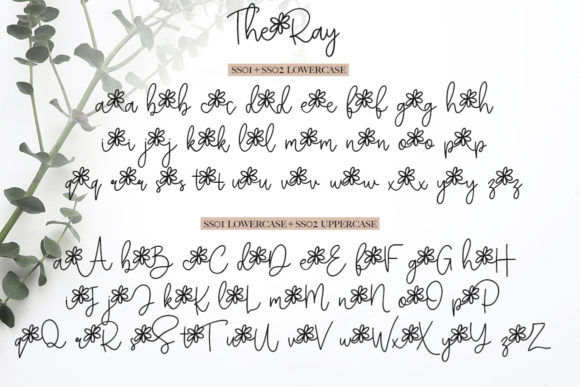 The✿Ray
SS01 + SS02 LOWERCASE
a✿a b✿b c✿c d✿d e✿e f✿f g✿g h✿h
i✿i j✿j k✿k l✿l m✿m n✿n o✿o p✿p
q✿q r✿r s✿s t✿t u✿u v✿v w✿w x✿x y✿y z✿z
SS01 LOWERCASE + SS02 UPPERCASE
a✿A b✿B c✿C d✿D e✿E f✿F g✿G h✿H
i✿I j✿J k✿K l✿L m✿M n✿N o✿O p✿P
q✿Q r✿R s✿S t✿T u✿U v✿V w✿W x✿X y✿Y z✿Z